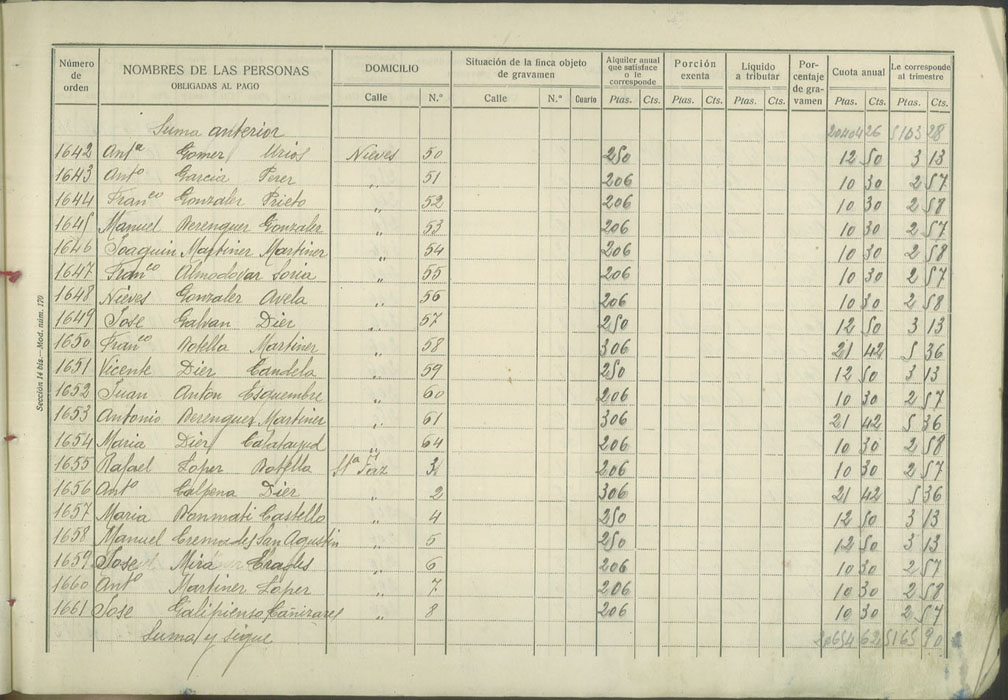 Número de orden | NOMBRES DE LAS PERSONAS OBLIGADAS AL PAGO | DOMICILIO | Situación de la finca objeto de gravamen | Alquiler anual que satisface o le corresponde | Porción exenta | Líquido a tributar | Porcentaje de gravamen | Cuota anual | Le corresponde al trimestre
Calle | N.º | Calle | N.º | Cuarto | Ptas. | Cts. | Ptas. | Cts. | Ptas. | Cts. | Ptas. | Cts. | Ptas. | Cts.
Suma anterior 20404 26 5103 28
1642 Antª Gomez Urios Nieves 50 250 12 50 3 13
1643 Antº Garcia Perez " 51 206 10 30 2 57
1644 Franco Gonzalez Prieto " 52 206 10 30 2 58
1645 Manuel Berenguer Gonzalez " 53 206 10 30 2 57
1646 Joaquin Martinez Martinez " 54 206 10 30 2 58
1647 Franco Almodovar Soria " 55 206 10 30 2 57
1648 Nieves Gonzalez Avela " 56 206 10 30 2 58
1649 Jose Galvan Diez " 57 250 12 50 3 13
1650 Franco Botella Martinez " 58 306 21 42 5 36
1651 Vicente Diez Candela " 59 250 12 50 3 13
1652 Juan Anton Esquembre " 60 206 10 30 2 57
1653 Antonio Berenguer Martinez " 61 306 21 42 5 36
1654 Maria Diez Calatayud " 64 206 10 30 2 58
1655 Rafael Lopez Botella Stª Faz 3 206 10 30 2 57
1656 Antº Calpena Diez " 2 306 21 42 5 36
1657 Maria Bonmati Castello " 4 250 12 50 3 13
1658 Manuel Cremades San Agustin " 5 250 12 50 3 13
1659 Jose Mira Erades " 6 206 10 30 2 57
1660 Antº Martinez Lopez " 7 206 10 30 2 58
1661 Jose Galipienso Cañizares " 8 206 10 30 2 57
Suma y sigue 20654 62 5165 90
Sección 14 bis.—Mod. núm. 170